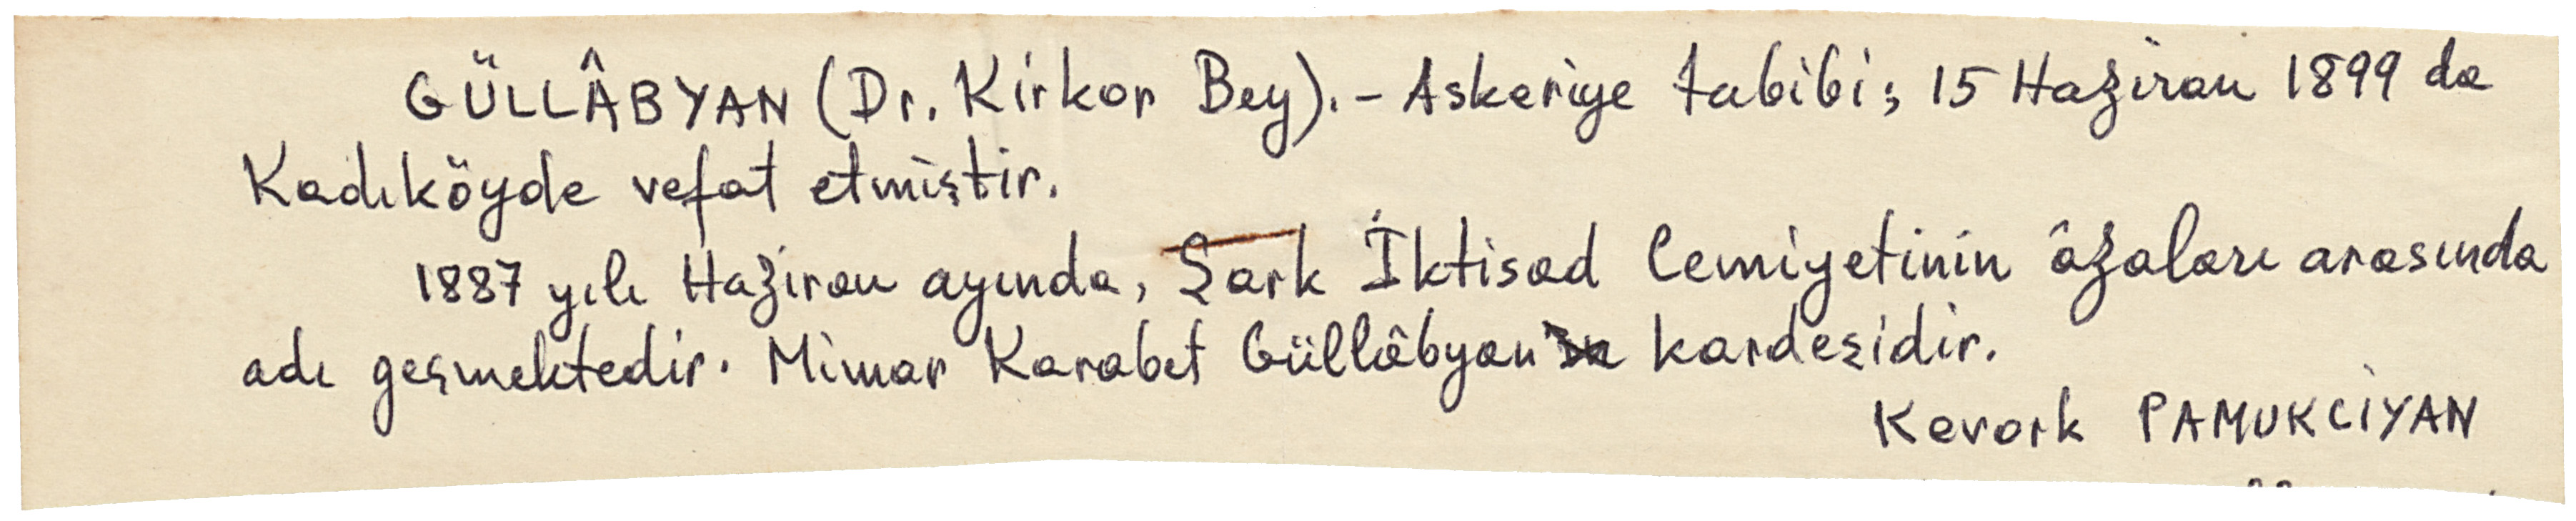 GÜLLÂBYAN (Dr. Kirkor Bey).- Askeriye tabibi; 15 Haziran 1899 da
Kadıköyde vefat etmiştir.
1887 yılı Haziran ayında, Şark İktisad Cemiyetinin âzaları arasında
adı geçmektedir. Mimar Karabet Güllâbyan'ın kardeşidir.
Kevork PAMUKCİYAN